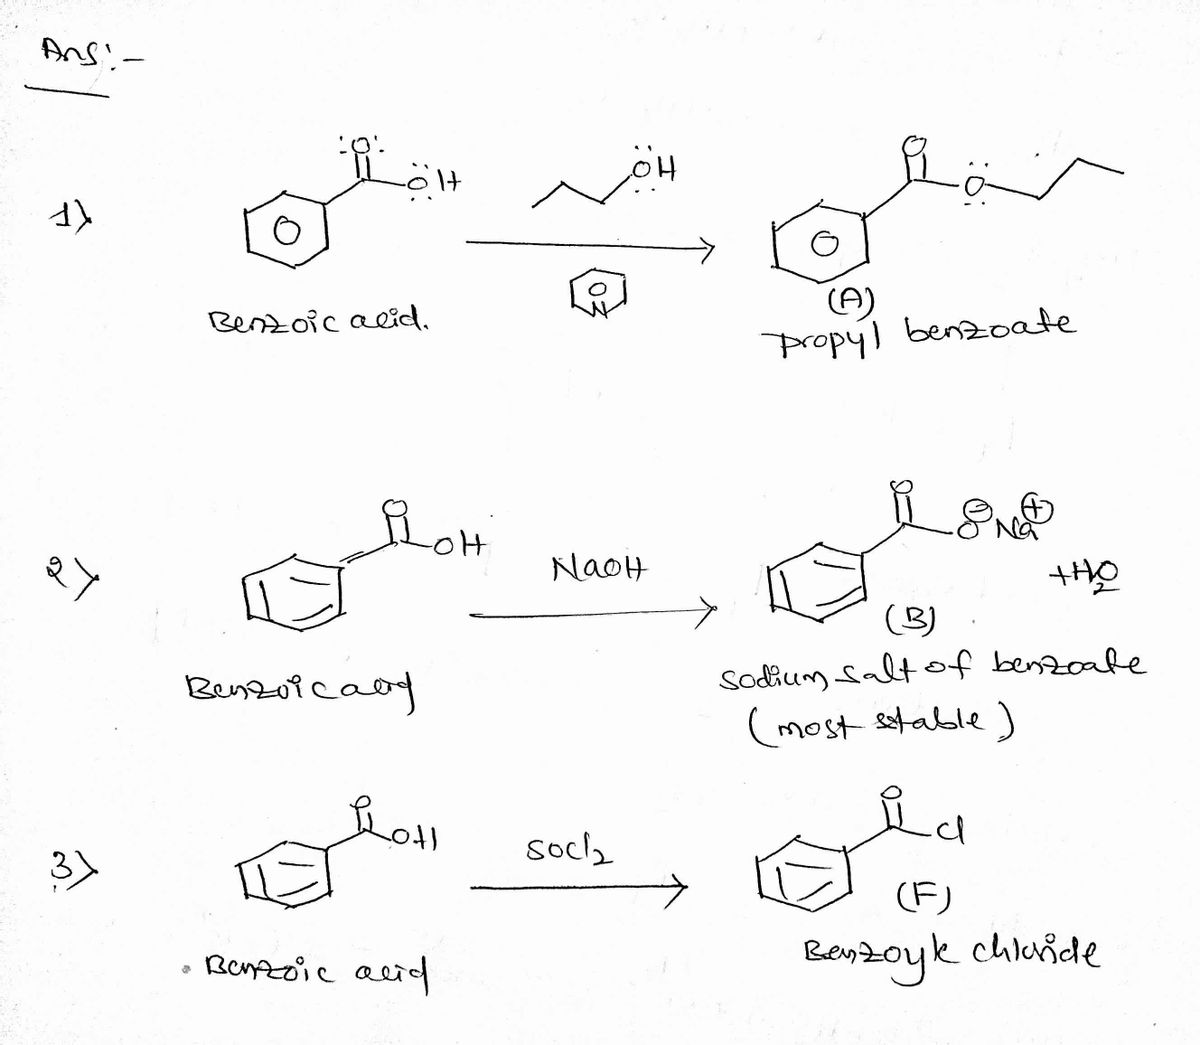 Ans:-
1)
:O:
ÖH
ÖH
N
O
O
Benzoic acid.
(A)
propyl benzoate
2)
O
OH
NaOH
O
O⊖ Na⊕
+H2O
(B)
Benzoic acid
Sodium salt of benzoate
(most stable)
3)
O
OH
SOCl2
O
Cl
(F)
Benzoic acid
Benzoyk chloride